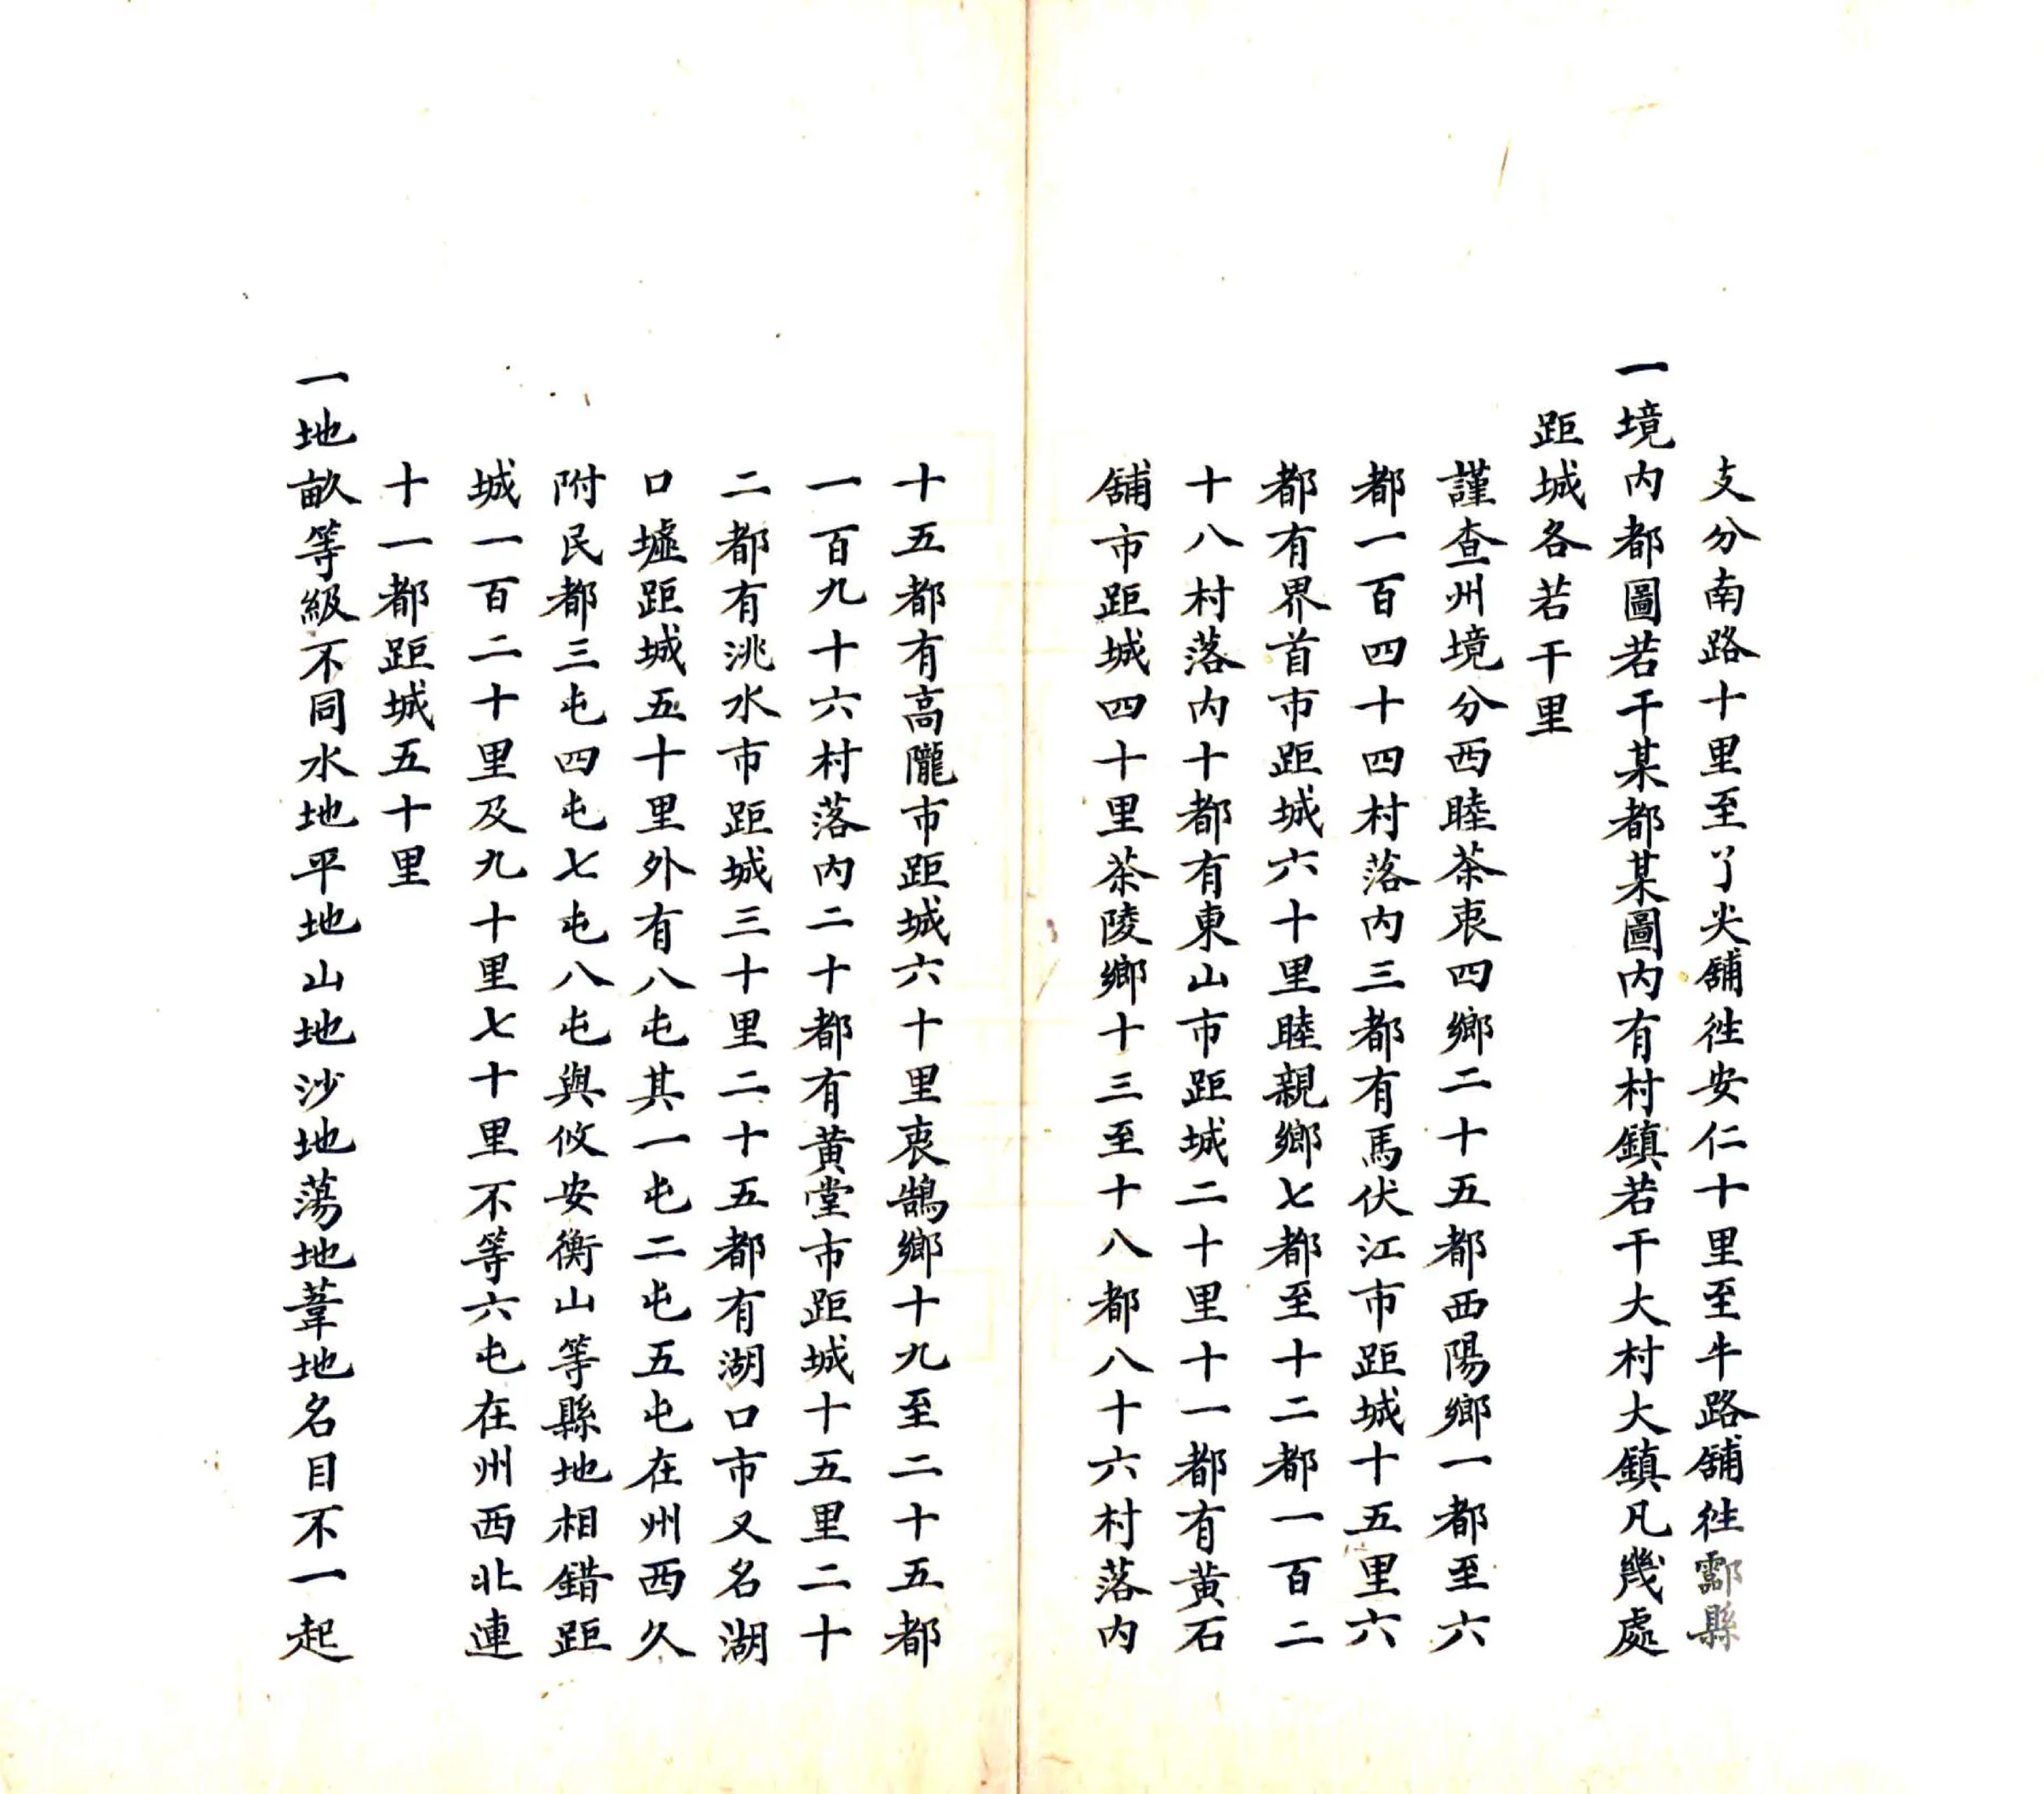 支分南路十里至丫尖舖徃安仁十里至牛路舖徃酃縣
一境内都圖若干某都某圖内有村鎮若干大村大鎮凡幾處
距城各若干里
謹查州境分西睦茶衷四鄉二十五都西陽鄉一都至六
都一百四十四村落内三都有馬伏江市距城十五里六
都有界首市距城六十里睦親鄉七都至十二都一百二
十八村落内十都有東山市距城二十里十一都有黃石
舖市距城四十里茶陵鄉十三至十八都八十六村落内
十五都有高隴市距城六十里衷鵠鄉十九至二十五都
一百九十六村落内二十都有黃堂市距城十五里二十
二都有洮水市距城三十里二十五都有湖口市又名湖
口墟距城五十里外有八屯其一屯二屯五屯在州西久
附民都三屯四屯七屯八屯與攸安衡山等縣地相錯距
城一百二十里及九十里七十里不等六屯在州西北連
十一都距城五十里
一地畝等級不同水地平地山地沙地蕩地葦地名目不一起